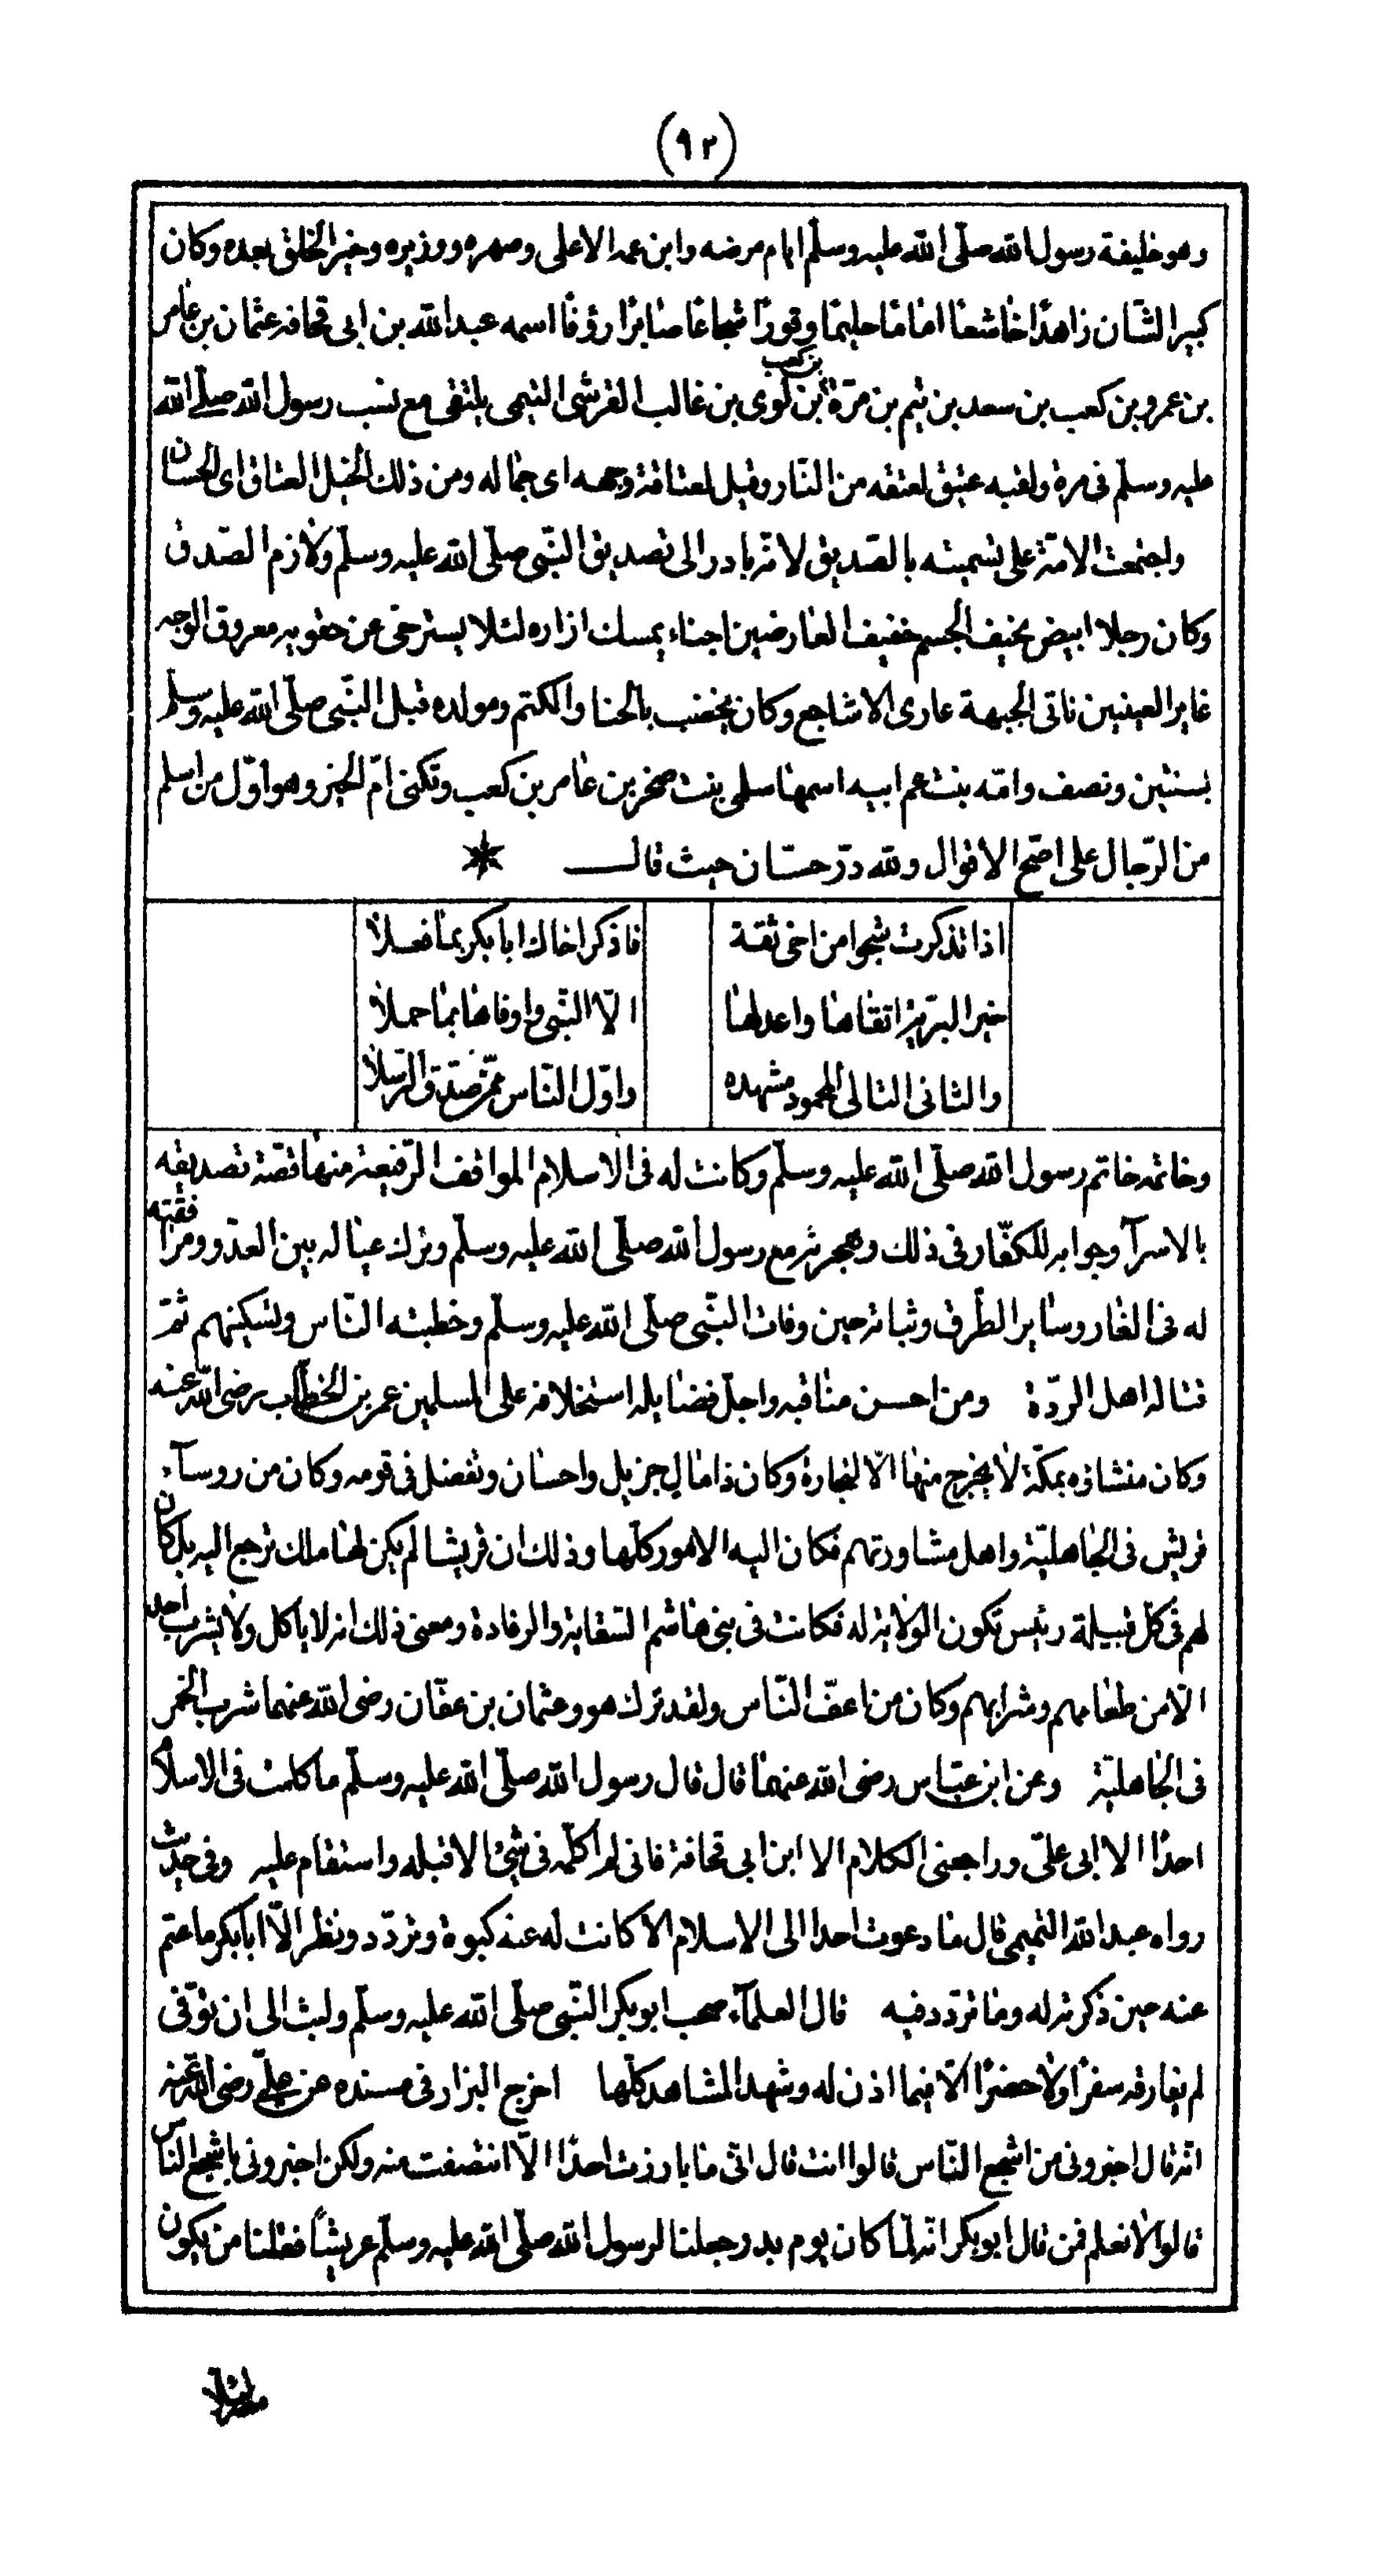 (٩٢)
وهو خليفة رسول الله صلّى الله عليه وسلّم ايام مرضه وابن عمه الاعلى وصهره ووزيره وخير الخلق بعده وكان
كبير الشّان زاهدًا خاشعًا امامًا حليمًا وقورًا شجاعًا صابرًا رؤفًا اسمه عبد الله بن ابى قحافه عثمان بن عامر
بن عمرو بن كعب بن سعد بن تيم بن مرّة بن كعب بن لوى بن غالب القرشى التيمى يلتقى مع نسب رسول الله صلّى الله
عليه وسلّم فى مرة ولقبه عتيق لعتقه من النّار وقيل لعتاقة وجهه اى جماله ومن ذلك الخيل العتاق اى الحسان
واجتمعت الامّة على تسميته بالصّديق لانّه بادر الى تصديق النّبى صلّى الله عليه وسلّم ولازم الصّدق
وكان رجلا ابيض نحيف الجسم خفيف العارضين اجناء يمسك ازاره لئلا يسترخى عن حقويه معروق الوجه
غاير العينين ناتى الجبهة عارى الاشاجع وكان يخضب بالحنا والكتم ومولده قبل النّبى صلّى الله عليه وسلم
بسنتين ونصف وامّه بنت عم ابيه اسمها سلمى بنت صخر بن عامر بن كعب وتكنى امّ الخير وهو اوّل من اسلم
من الرّجال على اصّح الاقوال ولله درّ حسّان حيث قال
اذا تذكرت شجوا من اخى ثقة فاذكر اخاك ابا بكر بما فعلا
خير البريّة اتقاها واعدلها الّا النّبى واوفاها بما حملا
والثانى التالى المحمود مشهده واوّل النّاس ممّن صدّق الرّسلا
وخاتمه خاتم رسول الله صلّى الله عليه وسلّم وكانت له فى الاسلام المواقف الرّفيعة منها قصّة تصديقه
بالاسرآ وجوابه للكفّار فى ذلك وهجرته مع رسول الله صلّى الله عليه وسلّم وترك عياله بين العدّو ومرافقته
له فى الغار وساير الطّرق وثباته حين وفات النّبى صلّى الله عليه وسلّم وخطبته النّاس وتسكينهم ثمّ
قتاله اهل الردّة ومن احسن مناقبه واجلّ فضايله استخلافه على المسلمين عمر بن الخطّاب رضى الله عنه
وكان منشاؤه بمكّة لا يخرج منها الّا لتجارة وكان ذا مال جزيل واحسان وتفضل فى قومه وكان من روسآء
قريش فى الجاهليّة واهل مشاورتهم فكان اليه الامور كلّها وذلك ان قريشا لم يكن لها ملك ترجع اليه بل كان
لهم فى كل قبيلة رئيس تكون الولاية له فكانت فى بنى هاشم السّقاية والرفادة ومعنى ذلك انه لا ياكل ولا يشرب احد
الّا من طعامهم وشرابهم وكان من اعفّ النّاس ولقد ترك هو وعثمان بن عفّان رضى الله عنهما شرب الخمر
فى الجاهليّة وعن ابن عبّاس رضى الله عنهما قال قال رسول الله صلّى الله عليه وسلّم ما كلمت فى الاسلام
احدًا الا ابى علىّ وراجعنى الكلام الا ابن ابى قحافة فانى لم اكلّمه فى شئ الا قبله واستقام عليه وفى حديث
رواه عبد الله التميمى قال ما دعوت احدا الى الاسلام الا كانت له عنه كبوة وتردّد ونظر الّا ابا بكر ما عتم
عنه حين ذكرته له وما تردّد فيه قال العلمآء صحب ابو بكر النّبى صلّى الله عليه وسلّم ولبث الى ان توفّى
لم يفارقه سفرًا ولا حضرًا الّا فيما اذن له وشهد المشاهد كلّها اخرج البزار فى مسنده عن علىّ رضى الله عنه
انّه قال اخبرونى من اشجع النّاس قالوا انت قال انّى ما بارزت احدًا الّا انتصفت منه ولكن اخبرونى باشجع النّاس
قالوا لا نعلم فمن قال ابو بكر انّه لمّا كان يوم بدر جعلنا لرسول الله صلّى الله عليه وسلّم عريشًا فقلنا من يكون